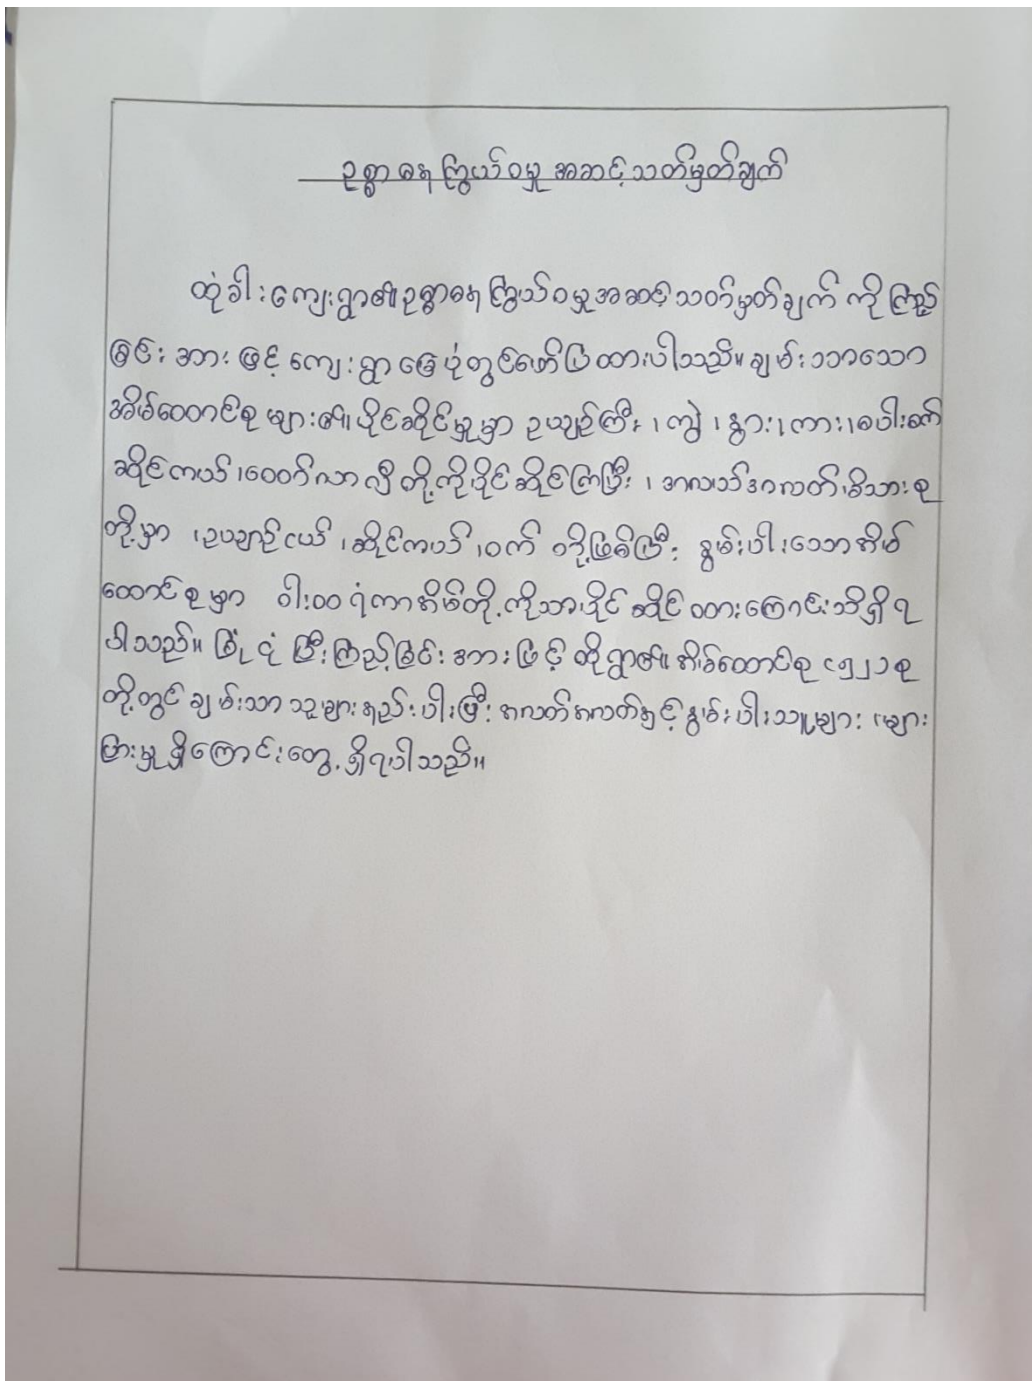 ဥစ္စာဓန ကြွယ်ဝမှု အဆင့်သတ်မှတ်ချက်
ထုံခါးကျေးရွာ၏ ဥစ္စာဓန ကြွယ်ဝမှုအဆင့် သတ်မှတ်ချက် ကို ကြည့်
ခြင်း အား ဖြင့် ကျေးရွာ မြေပုံတွင်ဖော်ပြထားပါသည်။ ချမ်းသာသော
အိမ်ထောင်စု များ၏ ပိုင်ဆိုင်မှုမှာ ဥယျာဉ်ကြီး ၊ ကျွဲ ၊ နွား ၊ ကား ၊ စပါးစက်
ဆိုင်ကယ် ၊ ထော်လာဂျီ တို့ကို ပိုင်ဆိုင်ကြပြီး ၊ အလယ်အလတ် မိသားစု
တို့မှာ ၊ ဥယျာဉ်ငယ် ၊ ဆိုင်ကယ် ၊ ဝက် တို့ဖြစ်ပြီး နွမ်းပါးသောအိမ်
ထောင်စု မှာ ဝါးထရံကာအိမ်တို့ကိုသာပိုင် ဆိုင် ထားကြောင်းသိရှိရ
ပါသည်။ ခြုံငုံ ပြီးကြည့်ခြင်း အားဖြင့် ထိုရွာ၏ အိမ်ထောင်စု ၄၅၂၁စု
တို့တွင် ချမ်းသာ သူများနည်းပါးပြီး အလတ်အလတ်နှင့် နွမ်းပါးသူများ များ
ပြားမှု ရှိကြောင်းတွေ့ရှိရပါသည်။